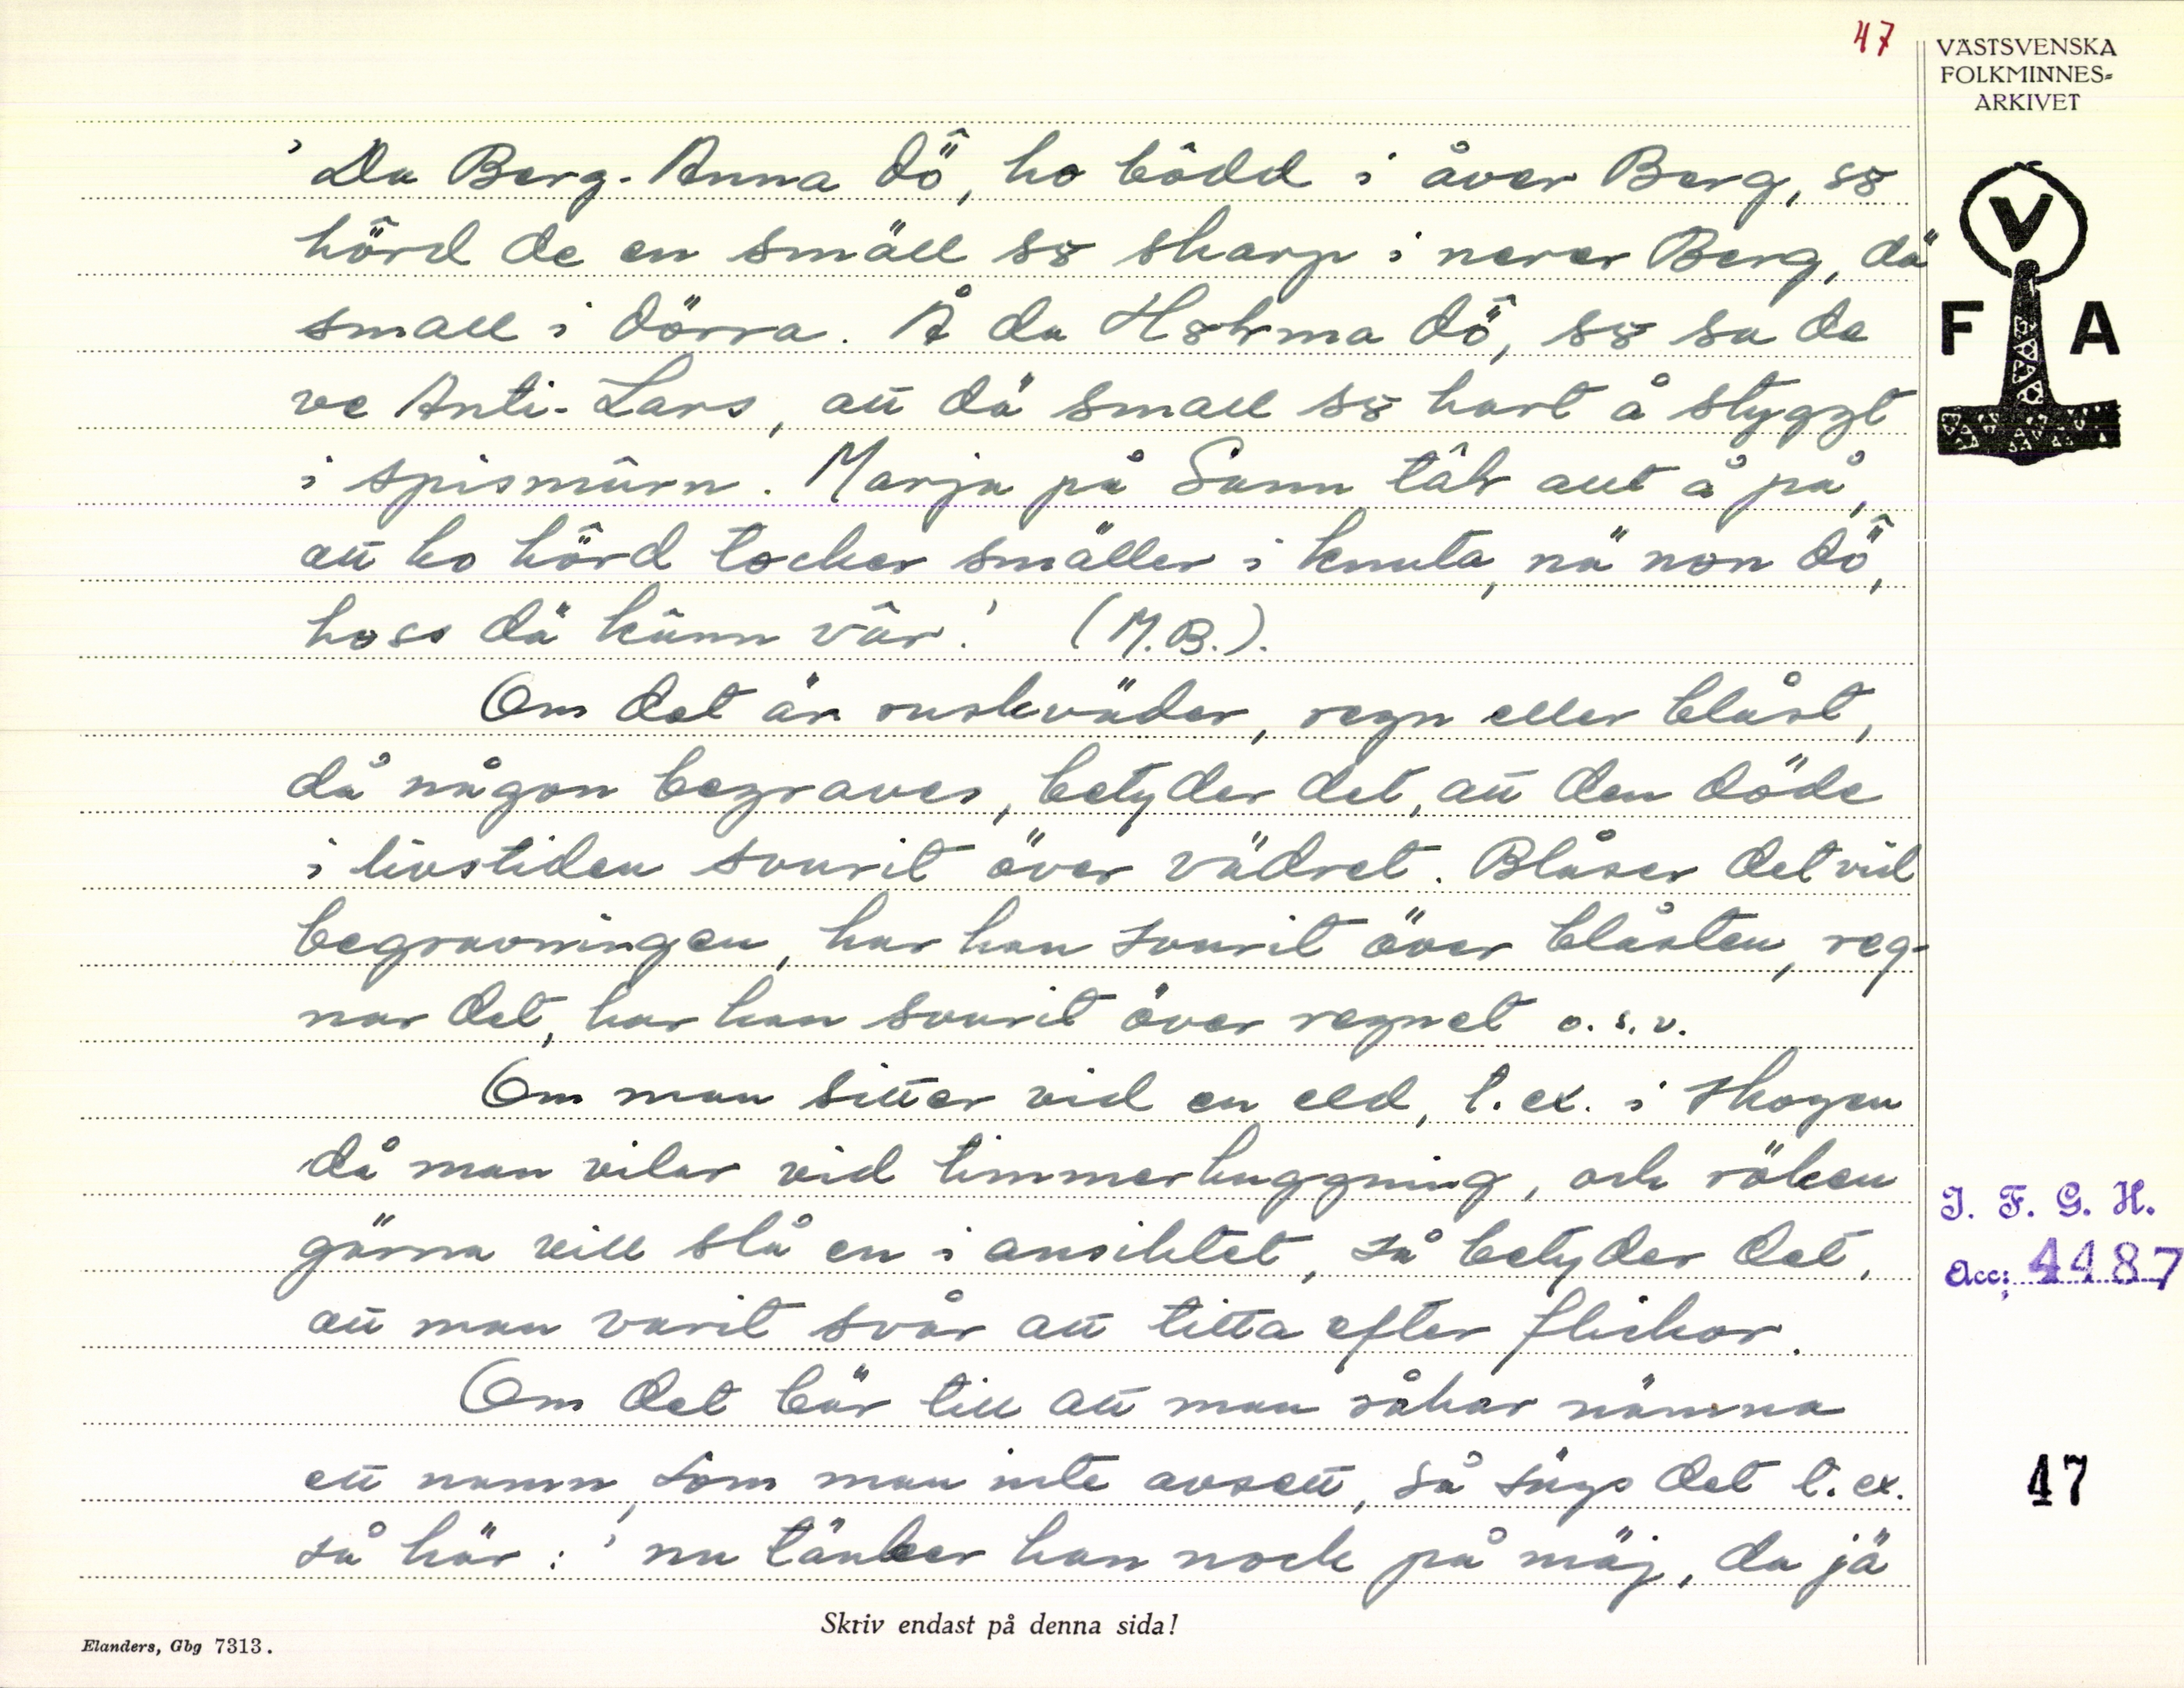 47
VÄSTSVENSKA
FOLKMINNES-
ARKIVET
'Da Berg-Anna dö̂, ho bôdd i åver Berg, s8
hö̂rd de en smäll s8 skarp i nerer Berg, dä
small i dörra. Å da H8kma dö̂, s8 sa de
ve Anti-Lars, att dä small s8 hart å stygzt
i spismûrn. Marja på Sunn tâk aut å på,
att ho hö̂rd tocker smäller i knuta, nä non dö̂,
hoss dä kûnn vâr.' (M.B.).
Om det är ruskväder, regn eller blåst,
då någon begraves, betyder det, att den döde
i livstiden svurit över vädret. Blåser det vid
begravningen, har han svurit över blåsten, reg-
nar det, har han svurit över regnet o.s.v.
Om man sitter vid en eld, t.ex. i skogen
då man vilar vid timmerhuggning, och röken
gärna vill slå en i ansiktet, så betyder det,
att man varit svår att titta efter flickor.
Om det bär till att man råkar nämna
ett namn, som man inte avsett, så sägs det t.ex.
så här: 'nu tänker han nock på mäj, da jä
V
F A
I. F. G. H.
Acc: 4487
47
Skriv endast på denna sida!
Elanders, Gbg 7313.